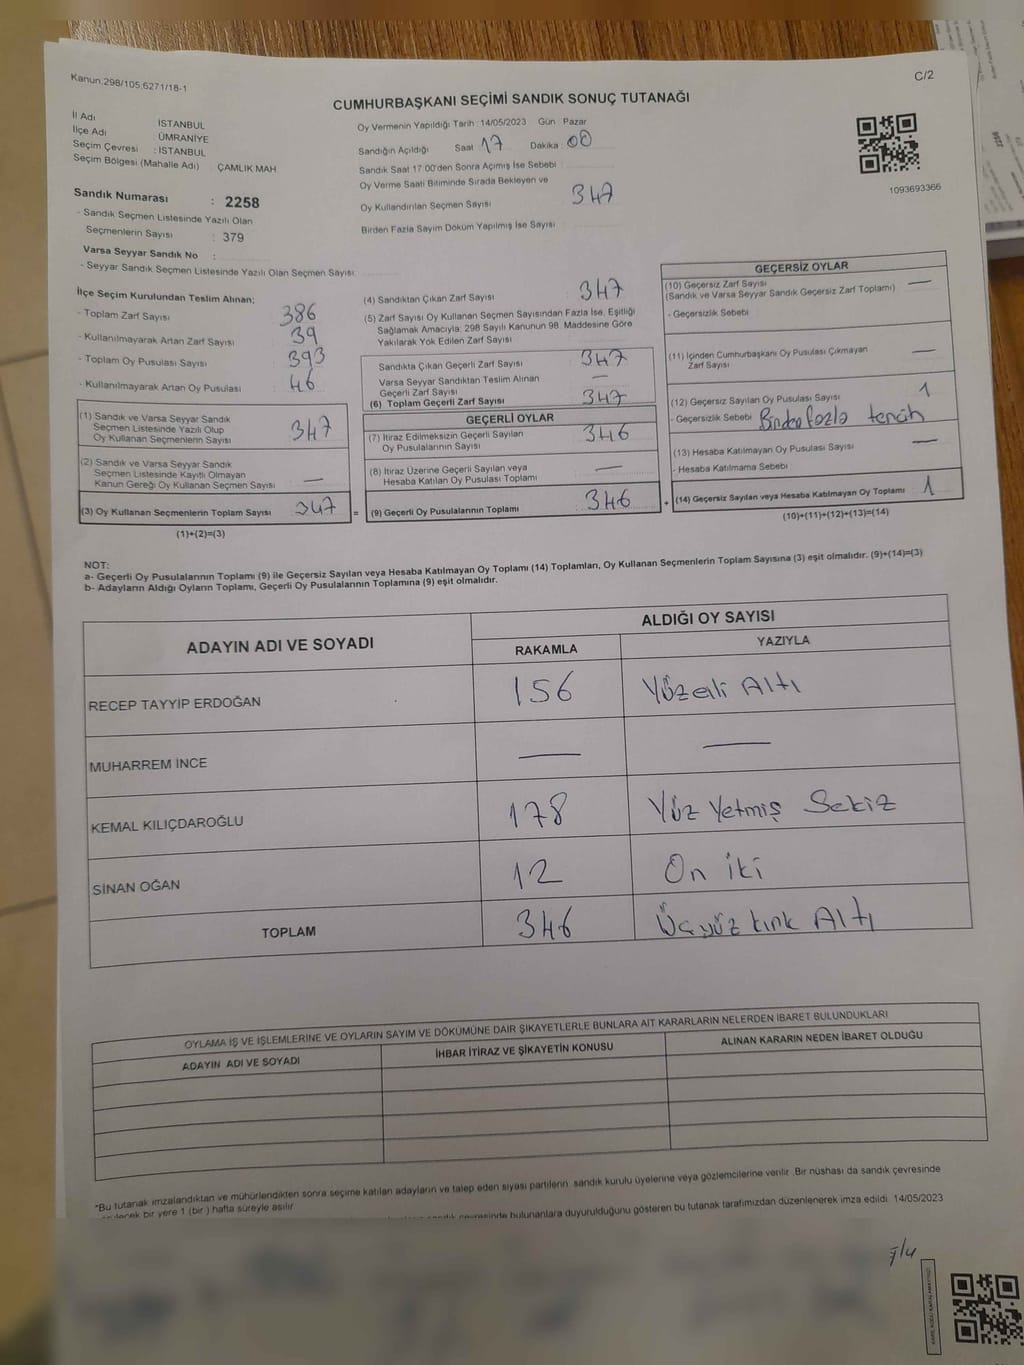 Kanun.298/105,6271/18-1
C/2
CUMHURBAŞKANI SEÇİMİ SANDIK SONUÇ TUTANAĞI
İl Adı İSTANBUL
İlçe Adı ÜMRANİYE
Seçim Çevresi : İSTANBUL
Seçim Bölgesi (Mahalle Adı) ÇAMLIK MAH
Sandık Numarası : 2258
- Sandık Seçmen Listesinde Yazılı Olan
Seçmenlerin Sayısı : 379
Varsa Seyyar Sandık No :
- Seyyar Sandık Seçmen Listesinde Yazılı Olan Seçmen Sayısı
Oy Vermenin Yapıldığı Tarih : 14/05/2023 Gün Pazar
Sandığın Açıldığı Saat 17 Dakika 00
Sandık Saat 17:00'den Sonra Açımış İse Sebebi
Oy Verme Saati Bitiminde Sırada Bekleyen ve
Oy Kullandırılan Seçmen Sayısı 347
Birden Fazla Sayım Döküm Yapılmış İse Sayısı
1093693366
İlçe Seçim Kurulundan Teslim Alınan;
- Toplam Zarf Sayısı 386
- Kullanılmayarak Artan Zarf Sayısı 39
- Toplam Oy Pusulası Sayısı 393
- Kullanılmayarak Artan Oy Pusulası 46
(1) Sandık ve Varsa Seyyar Sandık
Seçmen Listesinde Yazılı Olup
Oy Kullanan Seçmenlerin Sayısı 347
(2) Sandık ve Varsa Seyyar Sandık
Seçmen Listesinde Kayıtlı Olmayan
Kanun Gereği Oy Kullanan Seçmen Sayısı —
(3) Oy Kullanan Seçmenlerin Toplam Sayısı 347
(1)+(2)=(3)
=
(4) Sandıktan Çıkan Zarf Sayısı 347
(5) Zarf Sayısı Oy Kullanan Seçmen Sayısından Fazla İse, Eşitliği
Sağlamak Amacıyla: 298 Sayılı Kanunun 98. Maddesine Göre
Yakılarak Yok Edilen Zarf Sayısı
Sandıkta Çıkan Geçerli Zarf Sayısı 347
Varsa Seyyar Sandıktan Teslim Alınan
Geçerli Zarf Sayısı —
(6) Toplam Geçerli Zarf Sayısı 347
GEÇERLİ OYLAR
(7) İtiraz Edilmeksizin Geçerli Sayılan
Oy Pusulalarının Sayısı 346
(8) İtiraz Üzerine Geçerli Sayılan veya
Hesaba Katılan Oy Pusulası Toplamı —
(9) Geçerli Oy Pusulalarının Toplamı 346
+
GEÇERSİZ OYLAR
(10) Geçersiz Zarf Sayısı —
(Sandık ve Varsa Seyyar Sandık Geçersiz Zarf Toplamı)
- Geçersizlik Sebebi
(11) İçinden Cumhurbaşkanı Oy Pusulası Çıkmayan
Zarf Sayısı —
(12) Geçersiz Sayılan Oy Pusulası Sayısı 1
- Geçersizlik Sebebi Birden fazla tercih
(13) Hesaba Katılmayan Oy Pusulası Sayısı —
- Hesaba Katılmama Sebebi
(14) Geçersiz Sayılan veya Hesaba Katılmayan Oy Toplamı 1
(10)+(11)+(12)+(13)=(14)
NOT:
a- Geçerli Oy Pusulalarının Toplamı (9) ile Geçersiz Sayılan veya Hesaba Katılmayan Oy Toplamı (14) Toplamları, Oy Kullanan Seçmenlerin Toplam Sayısına (3) eşit olmalıdır. (9)+(14)=(3)
b- Adayların Aldığı Oyların Toplamı, Geçerli Oy Pusulalarının Toplamına (9) eşit olmalıdır.
ADAYIN ADI VE SOYADI
ALDIĞI OY SAYISI
RAKAMLA YAZIYLA
RECEP TAYYİP ERDOĞAN 156 Yüzelli Altı
MUHARREM İNCE — —
KEMAL KILIÇDAROĞLU 178 Yüz Yetmiş Sekiz
SİNAN OĞAN 12 On iki
TOPLAM 346 Üçyüz kırk Altı
OYLAMA İŞ VE İŞLEMLERİNE VE OYLARIN SAYIM VE DÖKÜMÜNE DAİR ŞİKAYETLERLE BUNLARA AİT KARARLARIN NELERDEN İBARET BULUNDUKLARI
ADAYIN ADI VE SOYADI İHBAR İTİRAZ VE ŞİKAYETİN KONUSU ALINAN KARARIN NEDEN İBARET OLDUĞU
*Bu tutanak imzalandıktan ve mühürlendikten sonra seçime katılan adayların ve talep eden siyasi partilerin sandık kurulu üyelerine veya gözlemcilerine verilir. Bir nüshası da sandık çevresinde
bir yere 1 (bir) hafta süreyle asılır
bulunanlara duyurulduğunu gösteren bu tutanak tarafımızdan düzenlenerek imza edildi. 14/05/2023